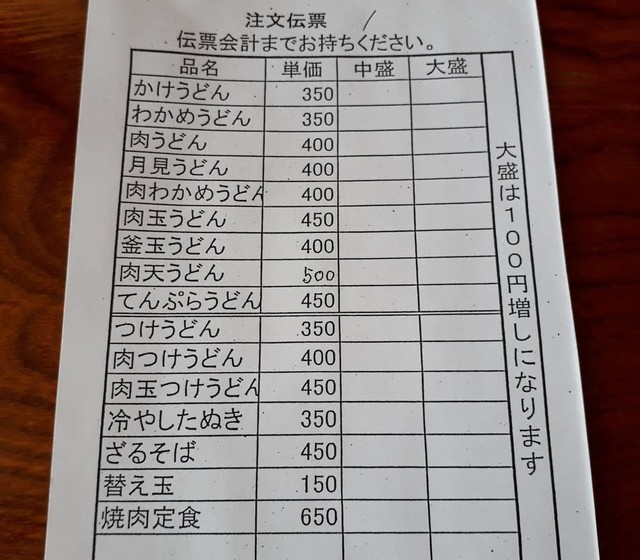 注文伝票
伝票会計までお持ちください。
品名 単価 中盛 大盛
かけうどん 350
わかめうどん 350
肉うどん 400
月見うどん 400
肉わかめうどん 400
肉玉うどん 450
釜玉うどん 400
肉天うどん 500
てんぷらうどん 450
つけうどん 350
肉つけうどん 400
肉玉つけうどん 450
冷やしたぬき 350
ざるそば 450
替え玉 150
焼肉定食 650
大盛は100円増しになります